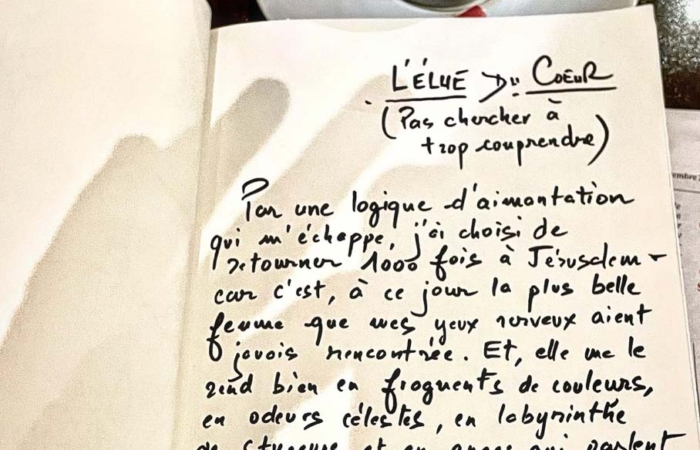 L'ÉLUE DU COEUR
(Pas chercher à
trop comprendre)
Par une logique d'aimantation
qui m'échappe, j'ai choisi de
retourner 1000 fois à Jérusalem -
car c'est, à ce jour la plus belle
femme que mes yeux nerveux aient
jamais rencontrée. Et, elle me le
rend bien en fragments de couleurs,
en odeurs célestes, en labyrinthe
de et en qui parlent
embre